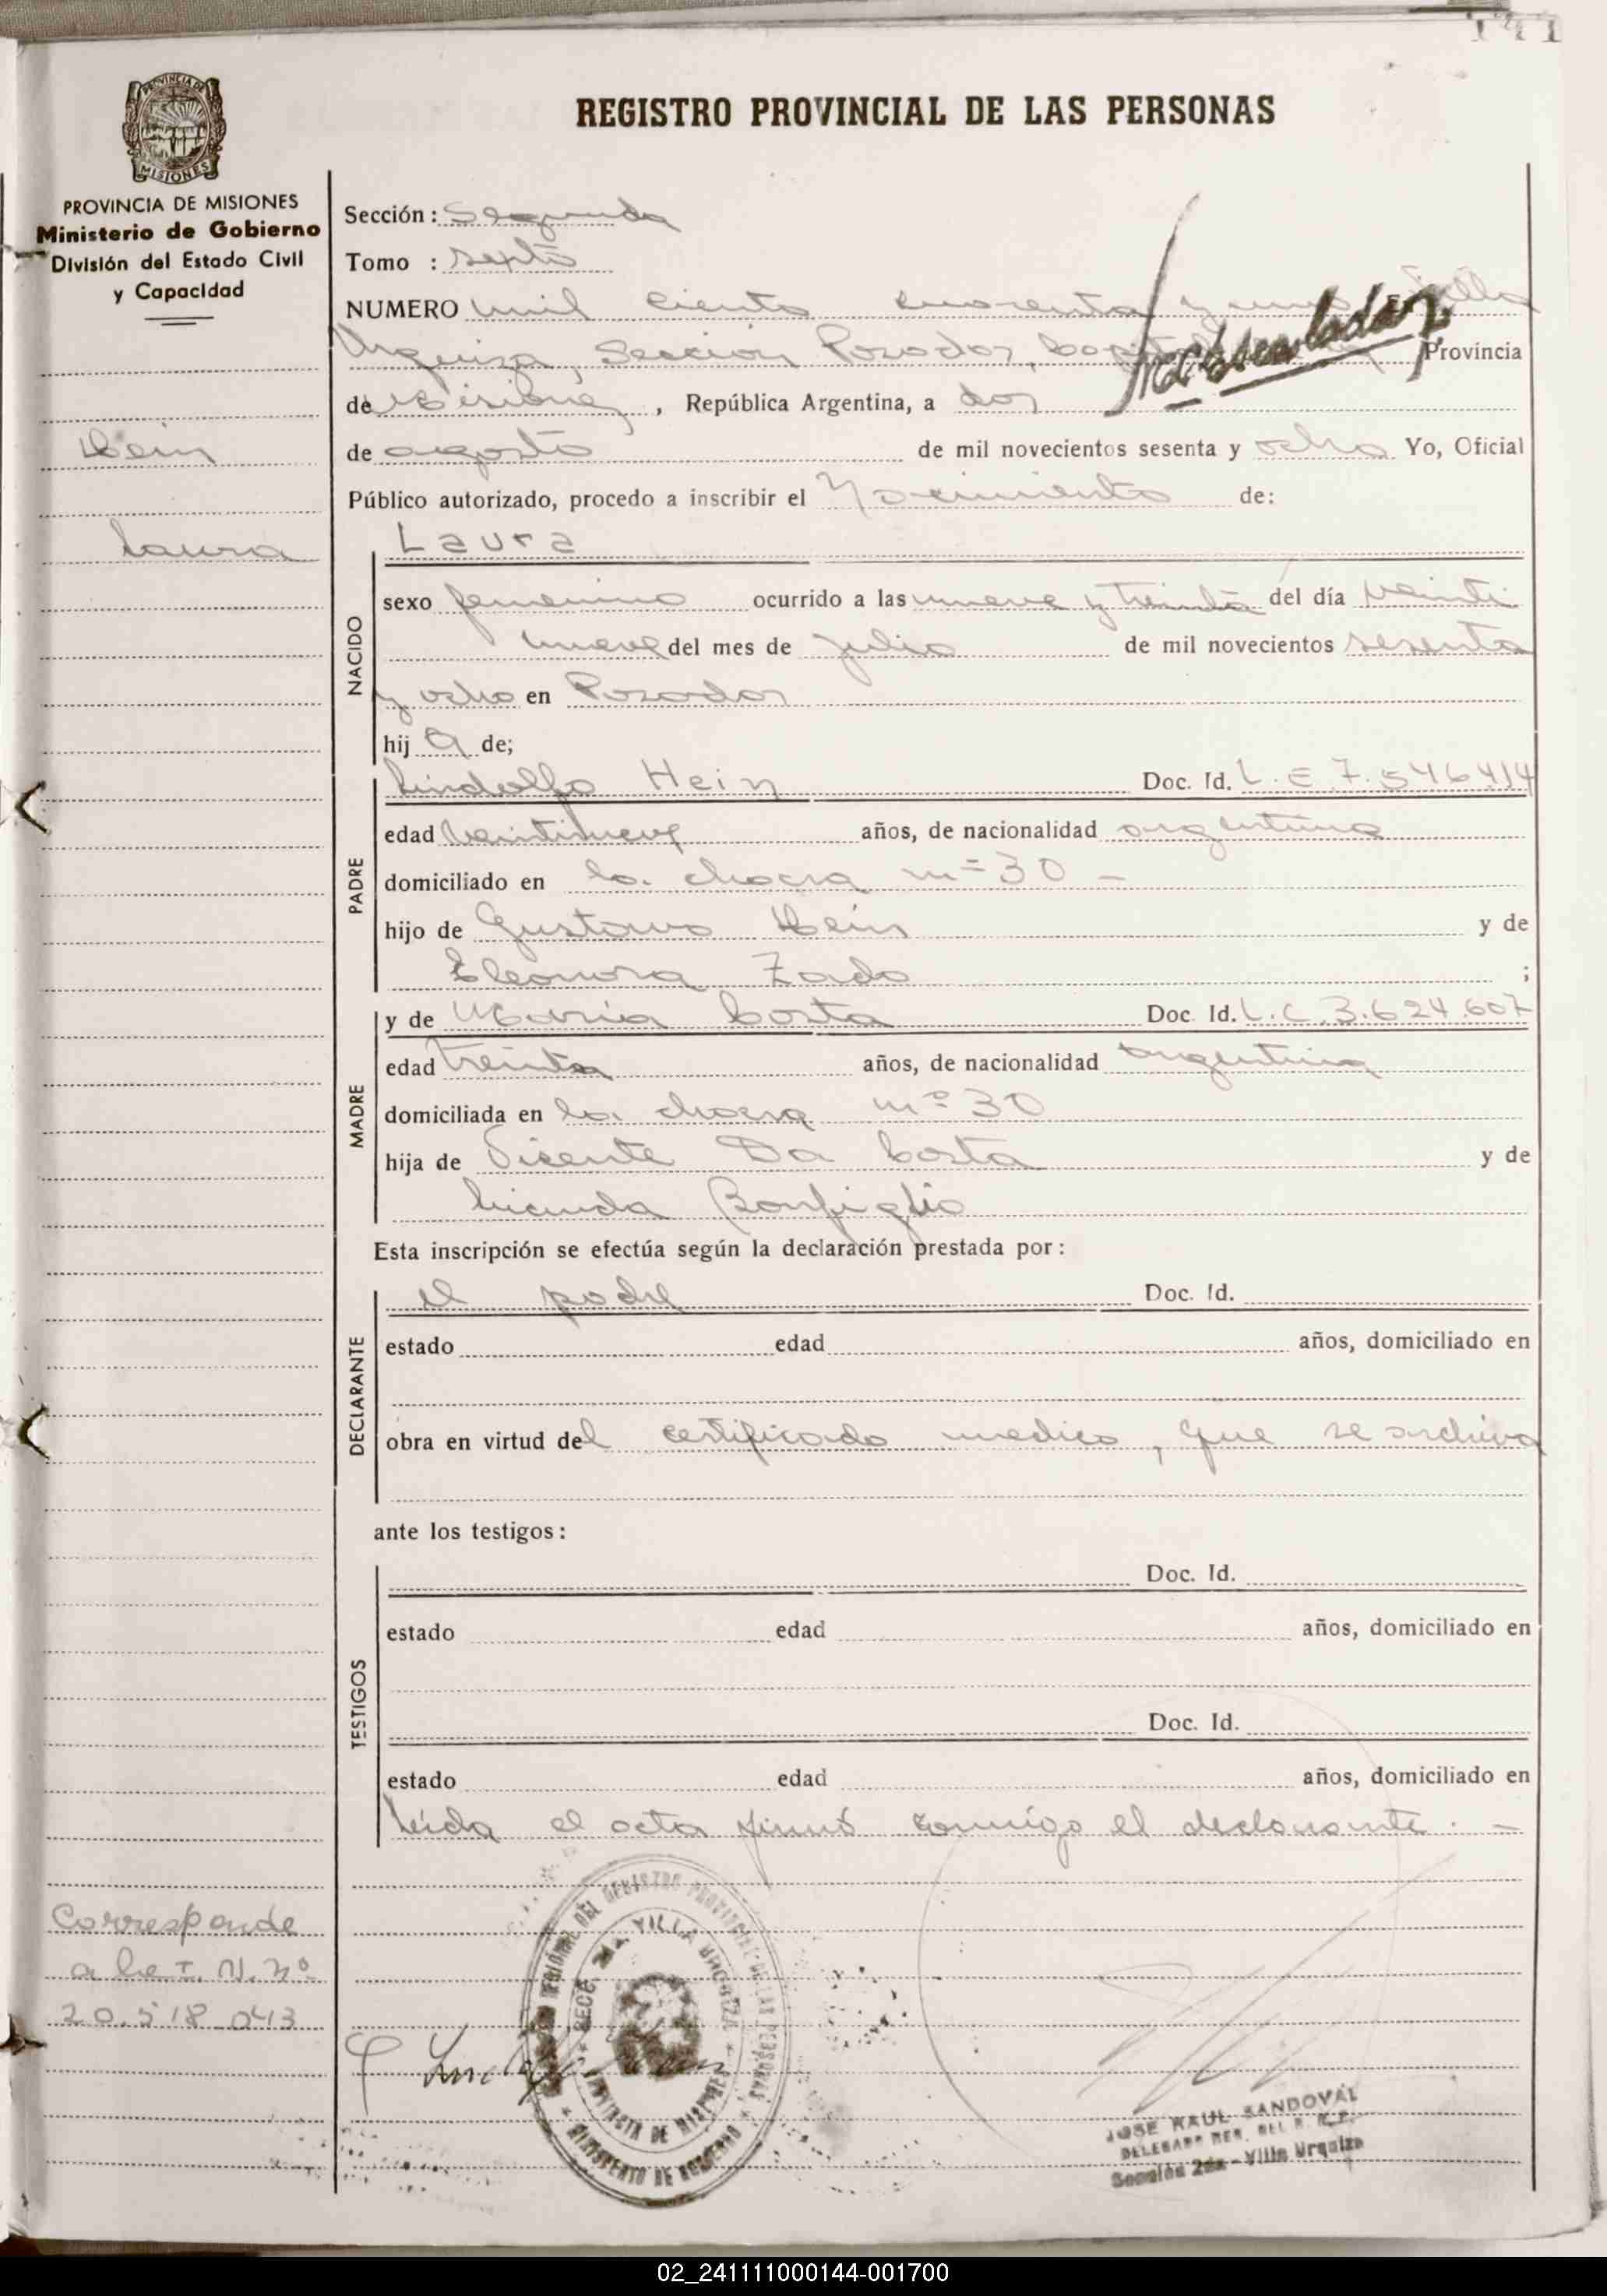 141
REGISTRO PROVINCIAL DE LAS PERSONAS
PROVINCIA DE
MISIONES
PROVINCIA DE MISIONES
Ministerio de Gobierno
División del Estado Civil
y Capacidad
Hein
Laura
Corresponde
a la I. N. nº
20.518.043
Sección: Segunda
Tomo : septo
NUMERO mil ciento cuarenta y uno Villa
Urquiza, Sección Posadas, Capital Provincia
de Misiones, República Argentina, a dos
de agosto de mil novecientos sesenta y ocho Yo, Oficial
Público autorizado, procedo a inscribir el Nacimiento de:
NACIDO
Laura
sexo femenino ocurrido a las nueve y treinta del día veinti
nueve del mes de julio de mil novecientos sesenta
y ocho en Posadas
hij a de;
PADRE
Lindolfo Hein Doc. Id. L. E 7.546.414
edad veintinueve años, de nacionalidad argentina
domiciliado en la chacra nº 30 -
hijo de Gustavo Hein y de
Eleonora Zado ;
MADRE
y de Maria Costa Doc. Id. L.C. 3.624.607
edad treinta años, de nacionalidad argentina
domiciliada en la chacra nº 30
hija de Vicente Da Costa y de
Lucinda Bonfiglio
Esta inscripción se efectúa según la declaración prestada por:
DECLARANTE
el padre Doc. Id.
estado edad años, domiciliado en
obra en virtud del certificado medico, que se archiva
ante los testigos:
TESTIGOS
Doc. Id.
estado edad años, domiciliado en
Doc. Id.
estado edad años, domiciliado en
leída el acta firmó conmigo el declarante. -
DEL REGISTRO PROVINCIAL DE LAS PERSONAS
SECC. 2da. VILLA URQUIZA
PROVINCIA DE MISIONES
MINISTERIO DE GOBIERNO
JOSE RAUL SANDOVAL
DELEGADO
Sección 2da - Villa Urquiza
02_241111000144-001700